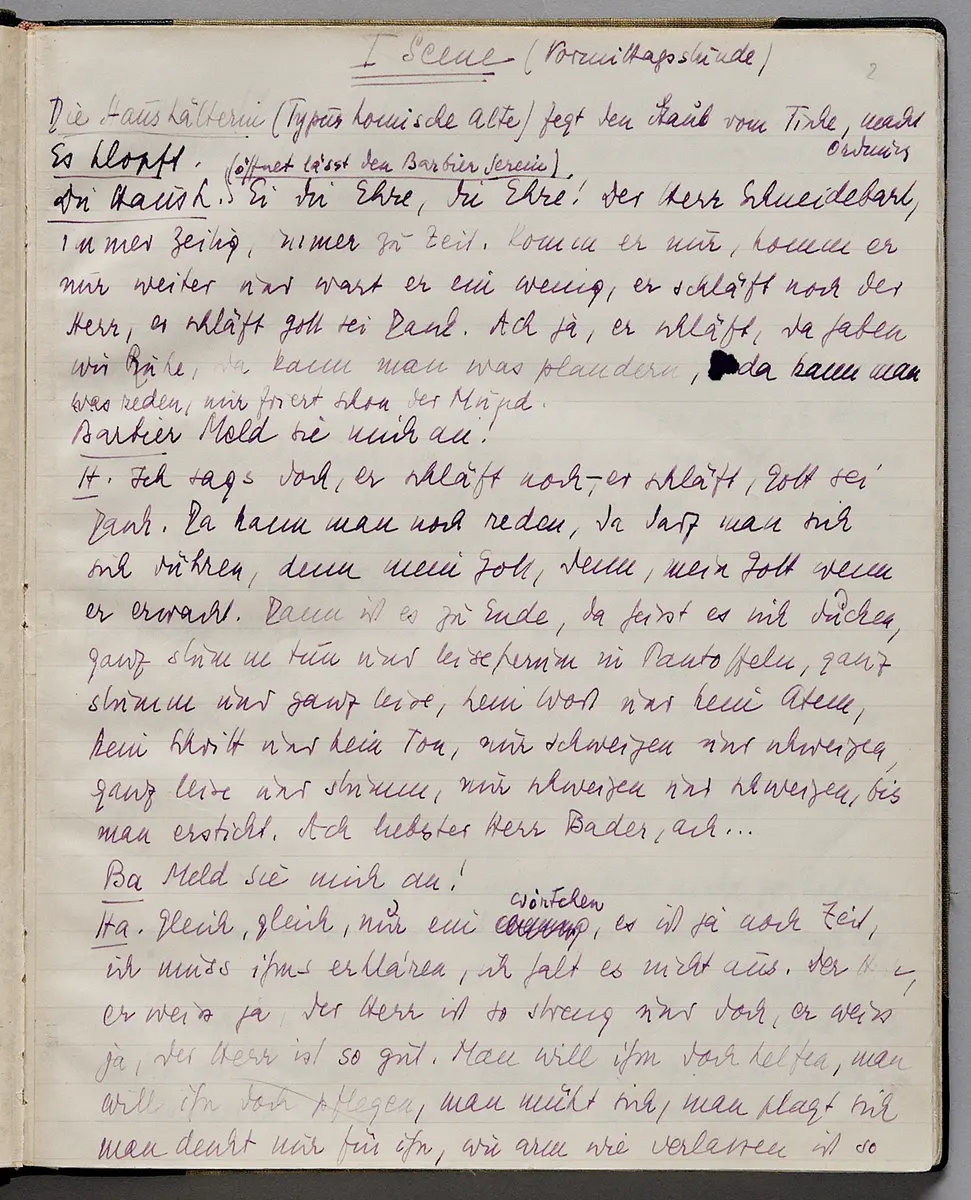 I Scene (Vormittagsstunde)
2
Die Haushälterin (Typus komische Alte) fegt den Staub vom Tische, macht
Ordnung
Es klopft. (öffnet lässt den Barbier herein).
Die Haush. Ei die Ehre, die Ehre! Der Herr Schneidebart,
immer zeitig, immer zu Zeit. Komm er nur, komm er
nur weiter und wart er ein wenig, er schläft noch der
Herr, er schläft gott sei Dank. Ach ja, er schläft, da haben
wir Ruhe, da kann man was plaudern, da kann man
was reden, mir friert schon der Mund.
Barbier Meld sie mich an!
H. Ich sags doch, er schläft noch, er schläft, Gott sei
Dank. Da kann man noch reden, da darf man sich
sich rühren, denn mein Gott, denn, mein Gott wenn
er erwacht. Dann ist es zu Ende, da heisst es sich ducken,
ganz stumm tun und leise herum in Pantoffeln, ganz
stumm und ganz leise, kein Wort und kein Atem,
kein Schritt und kein Ton, nur schweigen und schweigen,
ganz leise und stumm, nur schweigen und schweigen, bis
man erstickt. Ach liebster Herr Bader, ach...
Ba Meld sie mich an!
wörtchen
Ha. Gleich, gleich, nur ein, es ist ja noch Zeit,
ich muss ihms erklären, ich halt es nicht aus. Der
er weiss ja, der Herr ist so streng und doch, er weiss
ja, der Herr ist so gut. Man will ihm doch helfen, man
will ihn doch pflegen, man müht sich, man plagt sich
man denkt nur für ihn, wie arm wie verlassen ist so